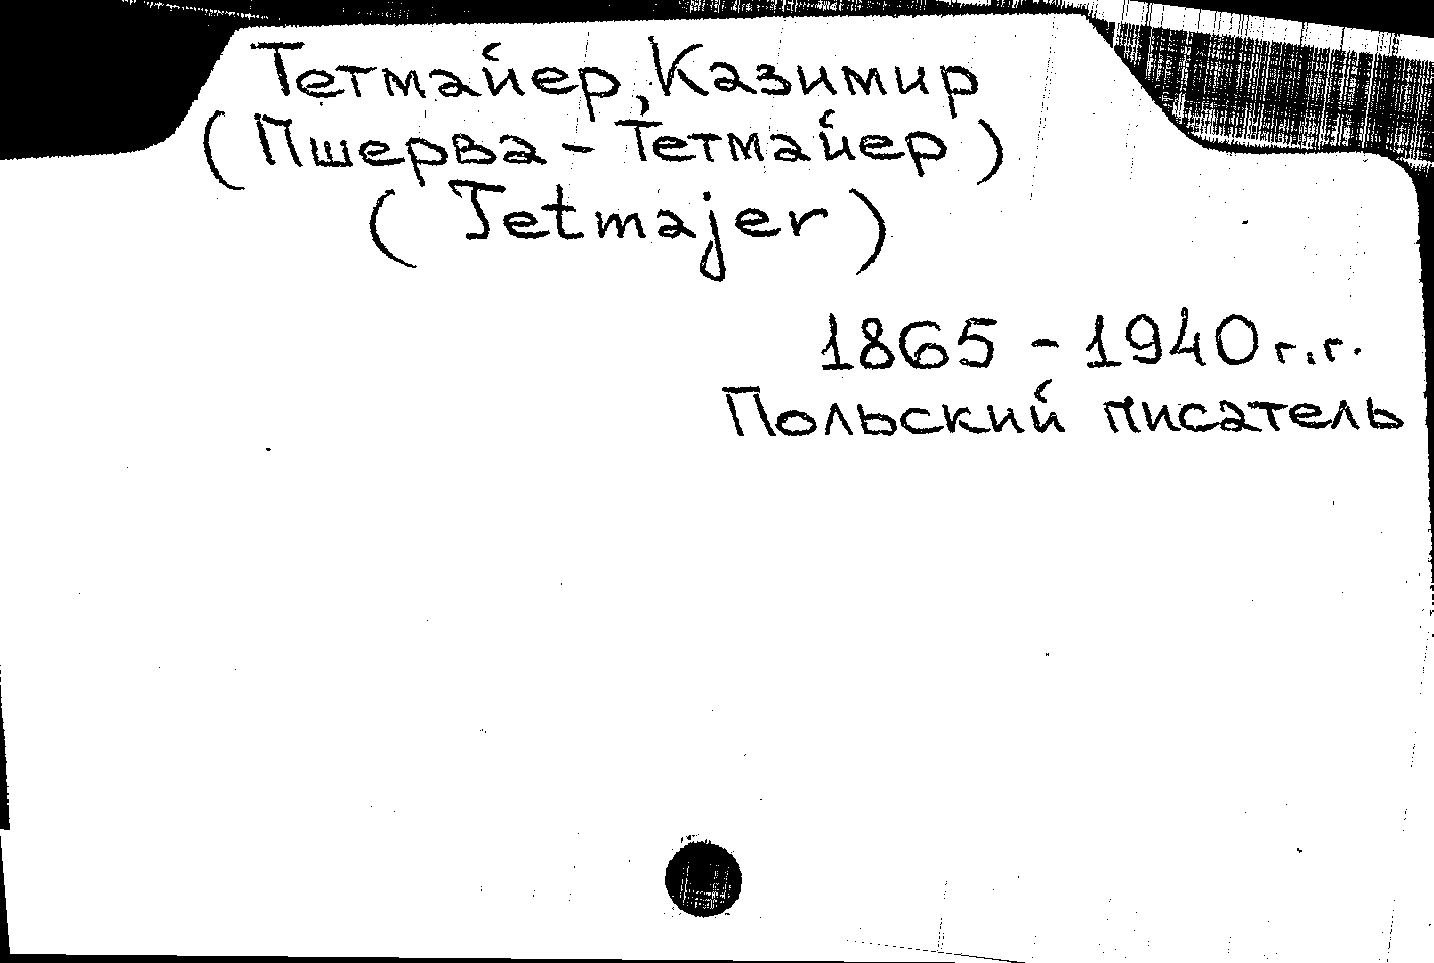 Тетмайер, Казимир
(Пшерва - Тетмайер)
(Tetmajer)
1865 - 1940 г.г.
Польский писатель